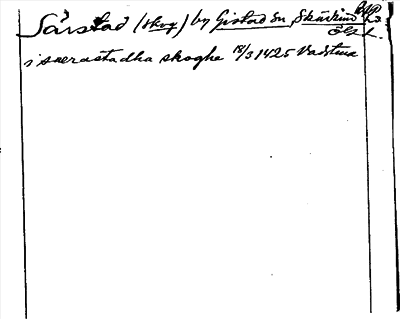 Särstad (skog) by Gistad sn, Skärkind
Ögl.
i saerastadha skoghe 18/3 1425 Vadstena